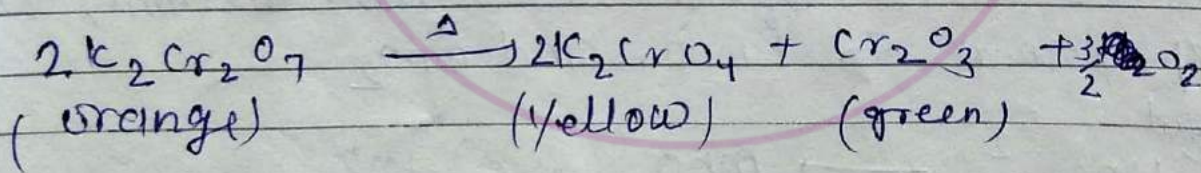 2K₂Cr₂O₇ —Δ→ 2K₂CrO₄ + Cr₂O₃ + 3/2 O₂
(orange) (Yellow) (green)